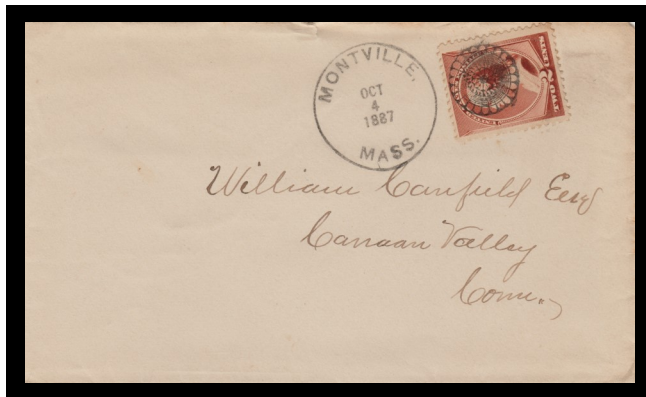 MONTVILLE,
OCT
4
1887
MASS.
TWO CENTS
William Canfield Esq
Canaan Valley
Conn.